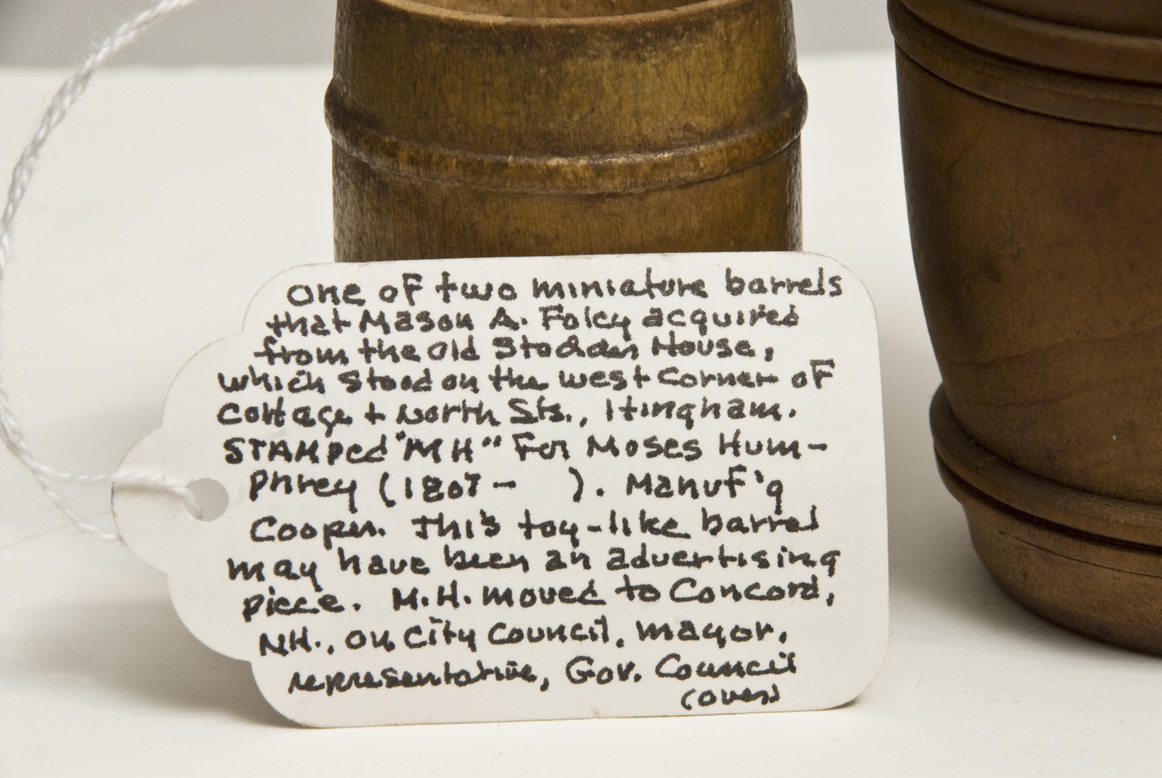 one of two miniature barrels
that Mason A. Foley acquired
from the old Stodder House,
which stood on the west corner of
Cottage + North Sts., Hingham.
STAMPED "MH" For Moses Hum-
phrey (1807-     ). Manuf'g
Cooper. This toy-like barrel
may have been an advertising
piece. M.H. moved to Concord,
NH., on City Council, mayor,
representative, Gov. Council
(over)